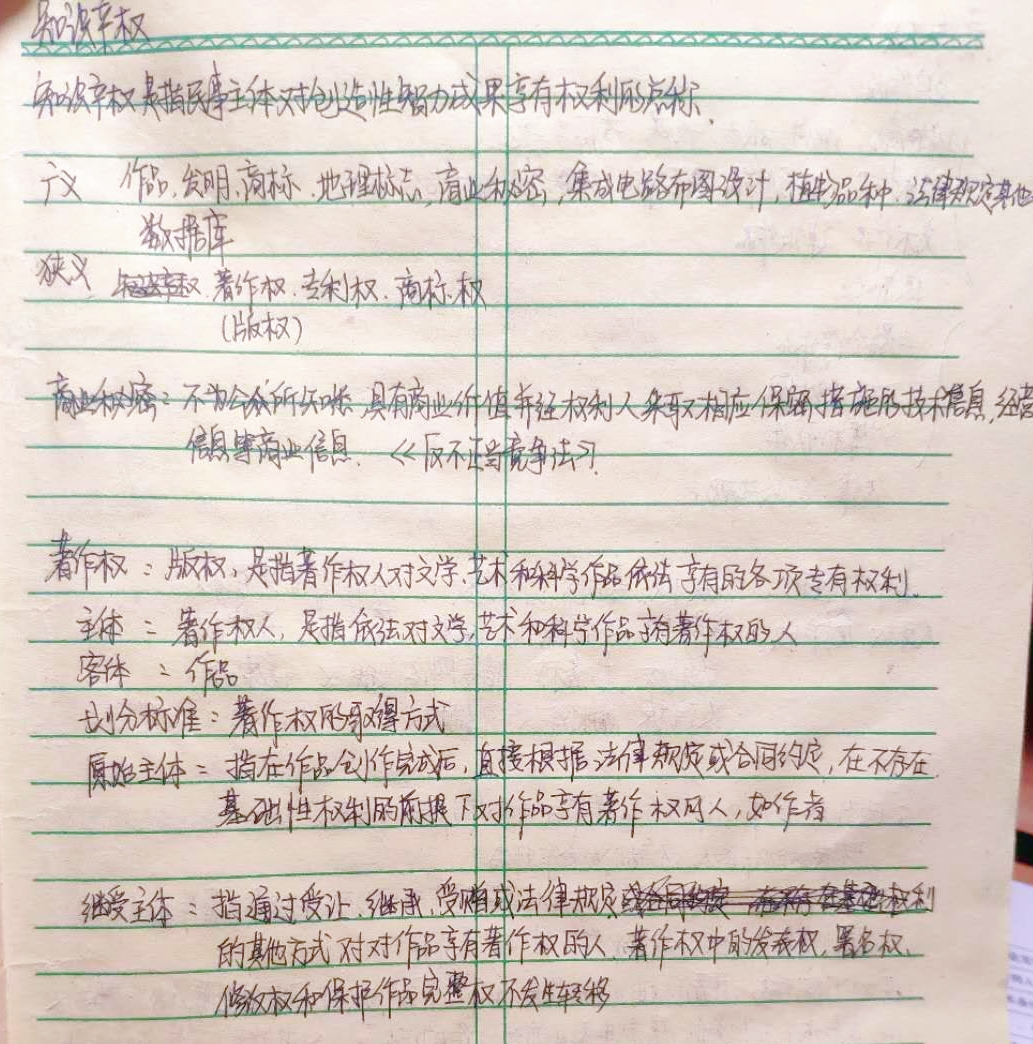 知识产权
知识产权是指民事主体对创造性智力成果享有权利的总称.
广义 作品,发明,商标,地理标志,商业秘密,集成电路布图设计,植物品种,法律规定其他
数据库
狭义 著作权、专利权、商标权
(版权)
商业秘密:不为公众所知悉,具有商业价值并经权利人采取相应保密措施的技术信息,经营
信息等商业信息. 《反不正当竞争法》.
著作权:版权,是指著作权人对文学、艺术和科学作品依法享有的各项专有权利.
主体:著作权人,是指依法对文学,艺术和科学作品享有著作权的人
客体:作品
划分标准:著作权的取得方式
原始主体:指在作品创作完成后,直接根据法律规定或合同约定,在不存在
基础性权利的前提下对作品享有著作权的人,如作者
继受主体:指通过受让、继承、受赠或法律规定
的其他方式对对作品享有著作权的人.著作权中的发表权,署名权、
修改权和保护作品完整权不发生转移